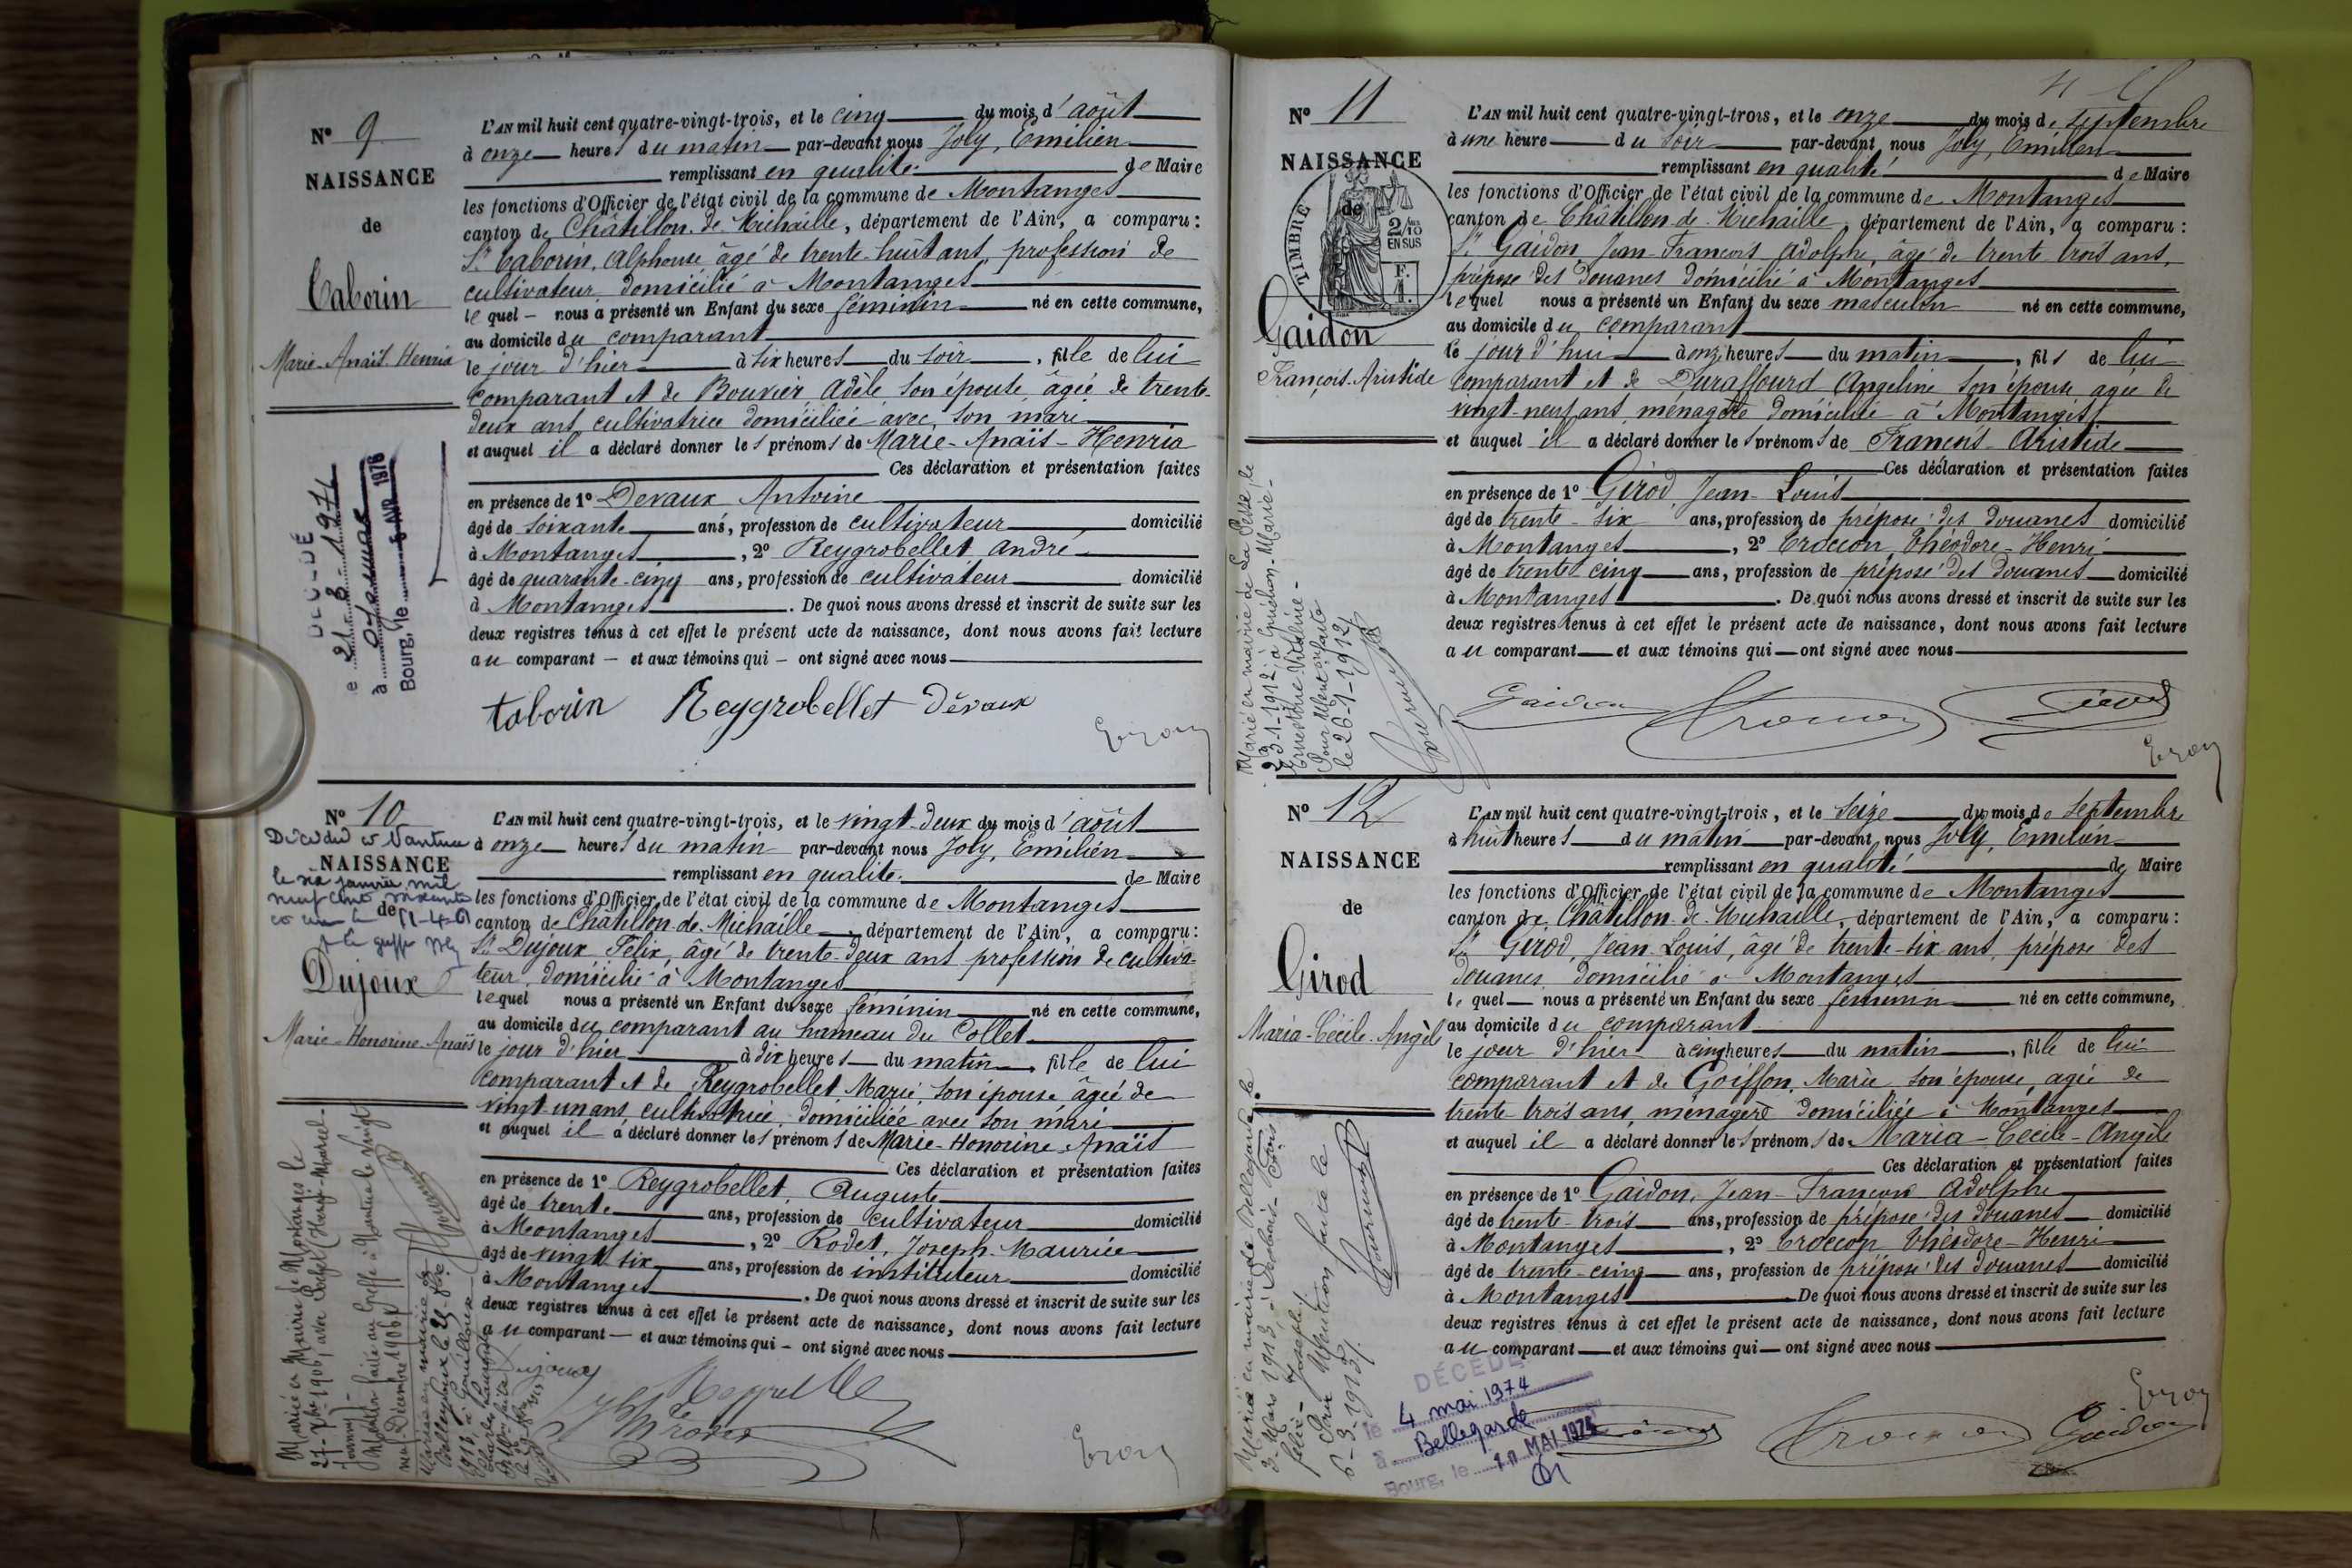 N° 9
NAISSANCE
de
Taborin
Marie-Anaïs-Henria
L'AN mil huit cent quatre-vingt-trois, et le cinq du mois d'août
à onze heures du matin par-devant nous Joly, Emilien
remplissant en qualité de Maire
les fonctions d'Officier de l'état civil de la commune de Montanges
canton de Châtillon-de-Michaille, département de l'Ain, a comparu :
Sr Taborin, Alphonse âgé de trente-huit ans, profession de
cultivateur domicilié à Montanges
lequel nous a présenté un Enfant du sexe féminin né en cette commune,
au domicile du comparant
le jour d'hier à six heures du soir, fille de lui
comparant et de Bouvier, Adèle son épouse, âgée de trente-
deux ans, cultivatrice domiciliée avec son mari
et auquel il a déclaré donner les prénoms de Marie-Anaïs-Henria
Ces déclaration et présentation faites
en présence de 1° Devaux Antoine
âgé de soixante ans, profession de cultivateur domicilié
à Montanges, 2° Reygrobellet André
âgé de quarante-cinq ans, profession de cultivateur domicilié
à Montanges. De quoi nous avons dressé et inscrit de suite sur les
deux registres tenus à cet effet le présent acte de naissance, dont nous avons fait lecture
au comparant — et aux témoins qui — ont signé avec nous
taborin Reygrobellet Dévaux
DÉCÉDÉ
le 21-3-1976
à Oyonnax
Bourg, le 5 AVR 1976
N° 10
Décédée à Nantua
NAISSANCE
le six janvier mil
neuf cent soixante
de
Dujoux
Marie-Honorine-Anaïs
L'AN mil huit cent quatre-vingt-trois, et le vingt-deux du mois d'août
à onze heures du matin par-devant nous Joly, Emilien
remplissant en qualité de Maire
les fonctions d'Officier de l'état civil de la commune de Montanges
canton de Châtillon-de-Michaille, département de l'Ain, a comparu :
Sr Dujoux Félix, âgé de trente-deux ans profession de cultiva-
teur, domicilié à Montanges
lequel nous a présenté un Enfant du sexe féminin né en cette commune,
au domicile du comparant au hameau du Collet
le jour d'hier à dix heures du matin, fille de lui
comparant et de Reygrobellet Marie son épouse âgée de
vingt-un ans cultivatrice domiciliée avec son mari
et auquel il a déclaré donner les prénoms de Marie-Honorine-Anaïs
Ces déclaration et présentation faites
en présence de 1° Reygrobellet, Auguste
âgé de trente ans, profession de cultivateur domicilié
à Montanges, 2° Rodet, Joseph-Maurice
âgé de vingt-six ans, profession de instituteur domicilié
à Montanges. De quoi nous avons dressé et inscrit de suite sur les
deux registres tenus à cet effet le présent acte de naissance, dont nous avons fait lecture
au comparant — et aux témoins qui — ont signé avec nous
Dujoux
Rodet
Mariée en Mairie de Montanges le
27-Xbre 1906, avec
Mention faite au Greffe à Nantua le vingt
neuf Décembre 1906
N° 11
NAISSANCE
de
TIMBRE
2/10
EN SUS
Gaidon
François-Aristide
L'AN mil huit cent quatre-vingt-trois, et le onze du mois de septembre
à une heure du soir par-devant nous Joly, Emilien
remplissant en qualité de Maire
les fonctions d'Officier de l'état civil de la commune de Montanges
canton de Châtillon-de-Michaille département de l'Ain, a comparu :
Sr Gaidon, Jean-François Adolphe, âgé de trente-trois ans,
préposé des douanes domicilié à Montanges
lequel nous a présenté un Enfant du sexe masculin né en cette commune,
au domicile du comparant
le jour d'hui à onze heures du matin, fils de lui
comparant et de Duraffourd Angeline son épouse âgée de
vingt-neuf ans, ménagère domiciliée à Montanges
et auquel il a déclaré donner les prénoms de François-Aristide
Ces déclaration et présentation faites
en présence de 1° Girod Jean-Louis
âgé de trente-six ans, profession de préposé des douanes domicilié
à Montanges, 2° Troccon Théodore-Henri
âgé de trente-cinq ans, profession de préposé des douanes domicilié
à Montanges. De quoi nous avons dressé et inscrit de suite sur les
deux registres tenus à cet effet le présent acte de naissance, dont nous avons fait lecture
au comparant — et aux témoins qui — ont signé avec nous
Gaidon Troccon Girod
Marié en mairie de
23-1-1912, à Guichon-Marie-
Ernestine Vitaline-
Pour Mention faite
le 26-1-1912
N° 12
NAISSANCE
de
Girod
Maria-Cécile-Angèle
L'AN mil huit cent quatre-vingt-trois, et le seize du mois de septembre
à huit heures du matin par-devant nous Joly, Emilien
remplissant en qualité de Maire
les fonctions d'Officier de l'état civil de la commune de Montanges
canton de Châtillon-de-Michaille, département de l'Ain, a comparu :
Sr Girod, Jean-Louis, âgé de trente-six ans, préposé des
douanes, domicilié à Montanges
lequel nous a présenté un Enfant du sexe féminin né en cette commune,
au domicile du comparant
le jour d'hier à cinq heures du matin, fille de lui
comparant et de Goiffon, Marie son épouse, âgée de
trente-trois ans, ménagère domiciliée à Montanges
et auquel il a déclaré donner les prénoms de Maria-Cécile-Angèle
Ces déclaration et présentation faites
en présence de 1° Gaidon, Jean-François Adolphe
âgé de trente-trois ans, profession de préposé des douanes domicilié
à Montanges, 2° Troccon Théodore-Henri
âgé de trente-cinq ans, profession de préposé des douanes domicilié
à Montanges De quoi nous avons dressé et inscrit de suite sur les
deux registres tenus à cet effet le présent acte de naissance, dont nous avons fait lecture
au comparant — et aux témoins qui — ont signé avec nous
Troccon Gaidon
Mariée en mairie de Bellegarde, le
3-Mars 1913, à
félix-Joseph
Pour Mention faite le
6-3-1913
DÉCÉDÉ
le 4 mai 1974
à Bellegarde
Bourg, le MAI 1974